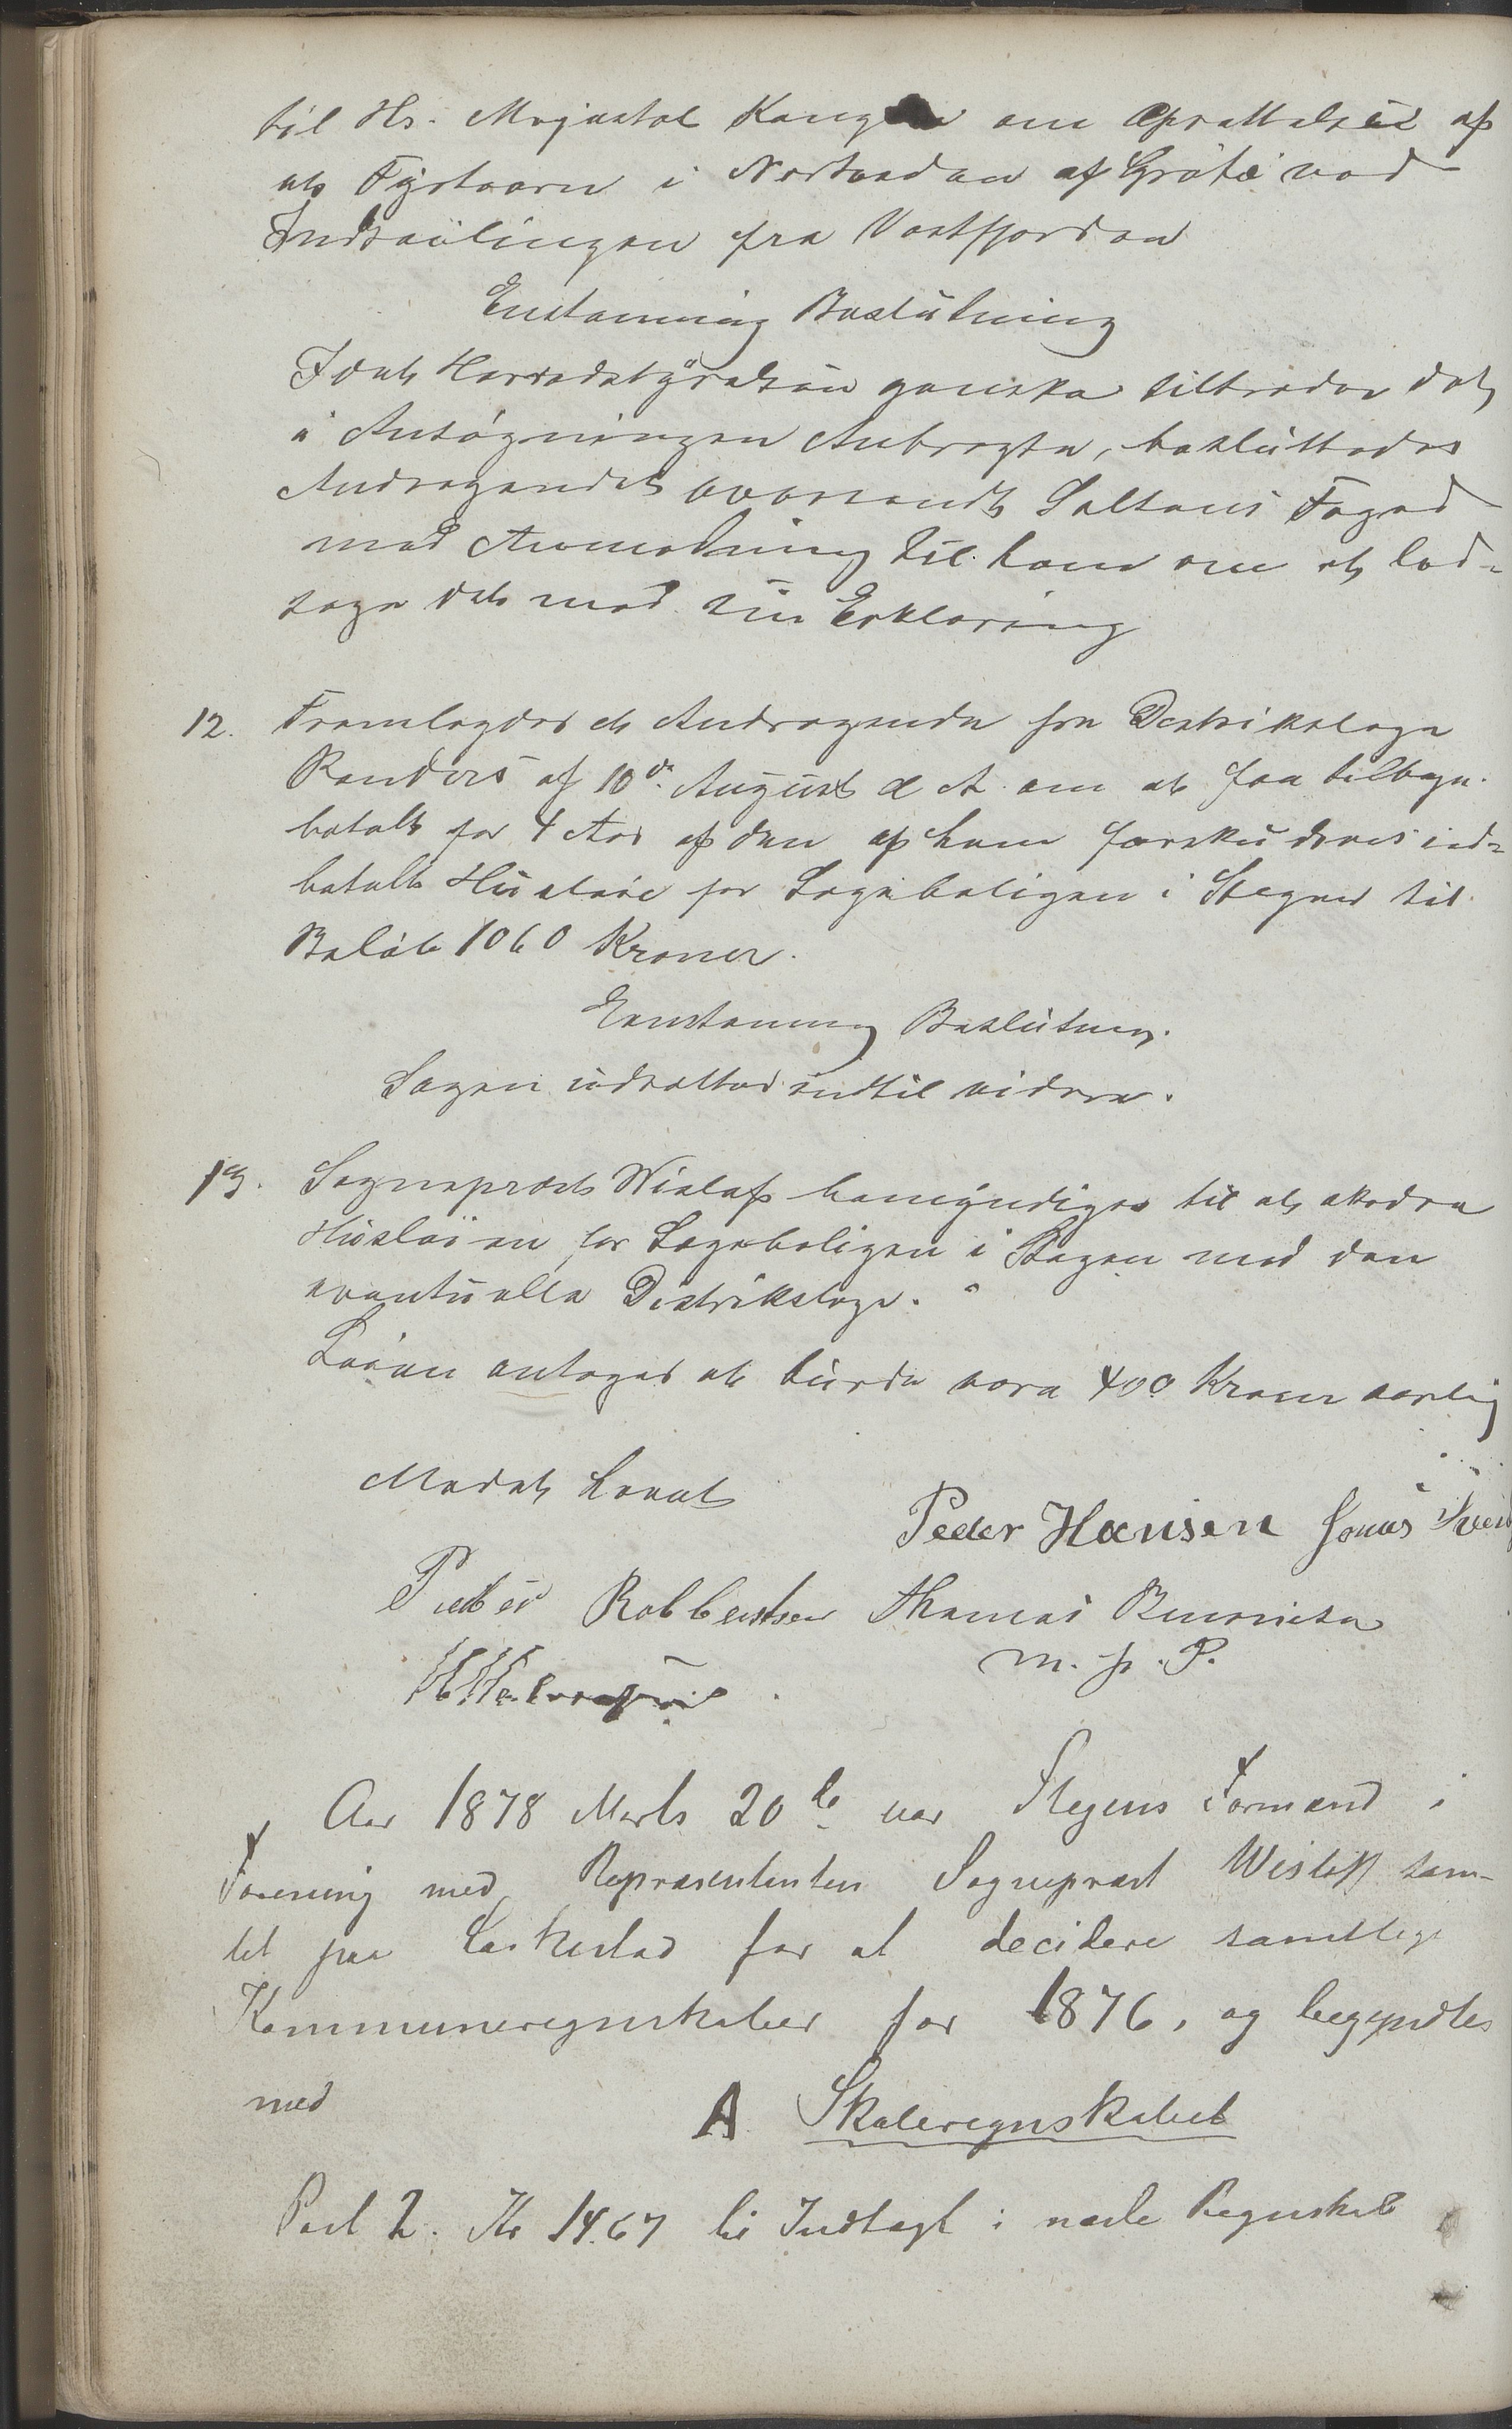 til Hs. Majestæt Kongen om Oprettelse af
et Fyrtaarn i Nordenden af Grötø ved
Indseilingen fra Vestfjorden
Enstemmig Beslutning
Idet Herredstyrelsen ganske tiltræder det
i Ansøgningen Anbragte, besluttedes
Andragendet oversendt Saltens Foged
med Anmodning til ham om at led-
sage det med sin Erklæring
12. Fremlagdes et Andragende fra Distriktslæge
Randers af 10de August d A. om at faa tilbage-
betalt for 4 Aar af den af ham forskudsvis ind-
betalte Husleie for Lægeboligen i Stegen til
Beløb 1060 Kroner.
Eenstemmig Beslutning.
Sagen udsættes indtil videre.
13. Sogneprest Wisløff bemyndiges til at akordere
Husleien for Lægeboligen i Stegen med den
eventuelle Distriktslæge.
Leien antages at burde være 400 Kroner aarlig
Mødet hævet
Peder Hansen Jonas
Peder Robbertsen Thomas
m. p. P.
Aar 1878 Marts 20de var Stegens Formænd i
Forening med Repræsentanten Sogneprest Wisløff sam-
let paa Laskestad for at decidere samtlige
Kommuneregnskaber for 1876, og begyndtes
med
A Skoleregnskabet
Post 2. Kr 14.67 bli Indtægt i næste Regnskab